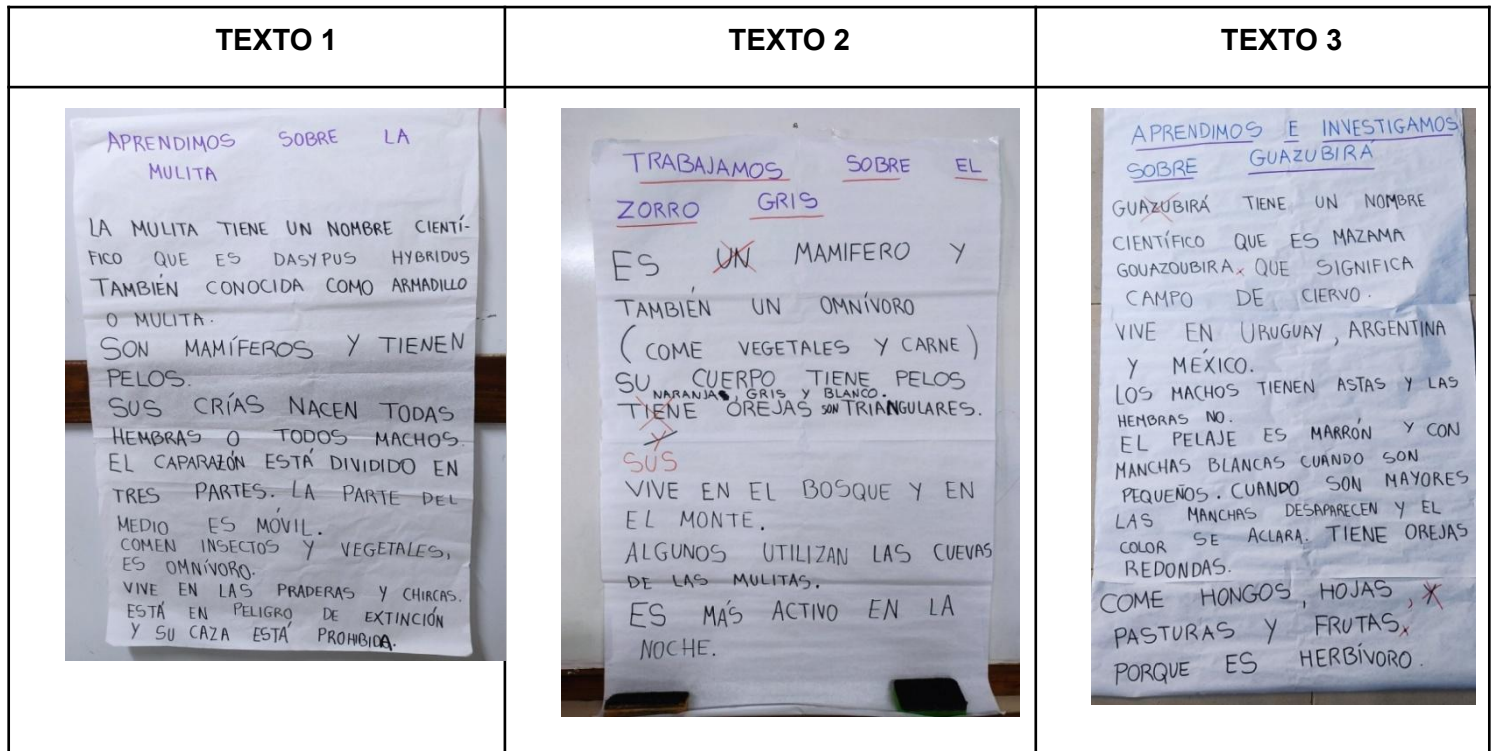 TEXTO 1
APRENDIMOS SOBRE LA
MULITA
LA MULITA TIENE UN NOMBRE CIENTÍ-
FICO QUE ES DASYPUS HYBRIDUS
TAMBIÉN CONOCIDA COMO ARMADILLO
O MULITA.
SON MAMÍFEROS Y TIENEN
PELOS.
SUS CRÍAS NACEN TODAS
HEMBRAS O TODOS MACHOS.
EL CAPARAZÓN ESTÁ DIVIDIDO EN
TRES PARTES. LA PARTE DEL
MEDIO ES MÓVIL.
COMEN INSECTOS Y VEGETALES,
ES OMNÍVORO.
VIVE EN LAS PRADERAS Y CHIRCAS.
ESTÁ EN PELIGRO DE EXTINCIÓN
Y SU CAZA ESTÁ PROHIBIDA.
TEXTO 2
TRABAJAMOS SOBRE EL
ZORRO GRIS
ES UN MAMIFERO Y
TAMBIÉN UN OMNÍVORO
(COME VEGETALES Y CARNE)
SU CUERPO TIENE PELOS
NARANJAS, GRIS Y BLANCO.
TIENE OREJAS SON TRIANGULARES.
Y
SUS
VIVE EN EL BOSQUE Y EN
EL MONTE.
ALGUNOS UTILIZAN LAS CUEVAS
DE LAS MULITAS.
ES MÁS ACTIVO EN LA
NOCHE.
TEXTO 3
APRENDIMOS E INVESTIGAMOS
SOBRE GUAZUBIRÁ
GUAZUBIRÁ TIENE UN NOMBRE
CIENTÍFICO QUE ES MAZAMA
GOUAZOUBIRA, QUE SIGNIFICA
CAMPO DE CIERVO.
VIVE EN URUGUAY, ARGENTINA
Y MÉXICO.
LOS MACHOS TIENEN ASTAS Y LAS
HEMBRAS NO.
EL PELAJE ES MARRÓN Y CON
MANCHAS BLANCAS CUANDO SON
PEQUEÑOS. CUANDO SON MAYORES
LAS MANCHAS DESAPARECEN Y EL
COLOR SE ACLARA. TIENE OREJAS
REDONDAS.
COME HONGOS, HOJAS, Y
PASTURAS Y FRUTAS
PORQUE ES HERBÍVORO.